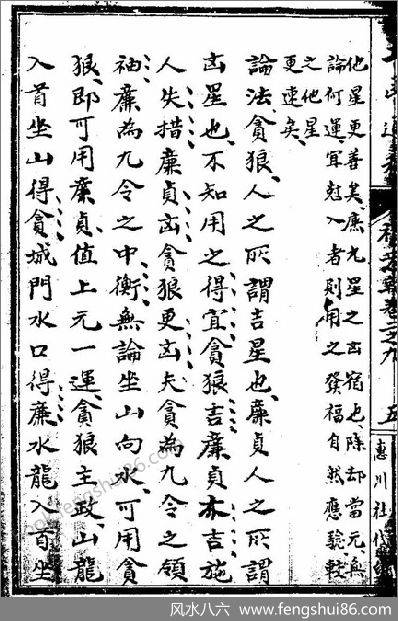 他星更善矣廉九星之凶宿也除却當元無
論何運宜尅入者則用之發福自然應驗較
之他星
更速矣
論法貪狼人之所謂吉星也廉貞人之所謂
凶星也不知用之得宜貪狼吉廉貞亦吉施
人失措廉貞凶貪狼更凶夫貪為九令之領
袖廉為九令之中衡無論坐山向水可用貪
狼即可用廉貞值上元一運貪狼主政山龍
入首坐山得貪城門水口得廉水龍入首坐
卷之九
五
惠川社
风水八六 www.fengshui86.com